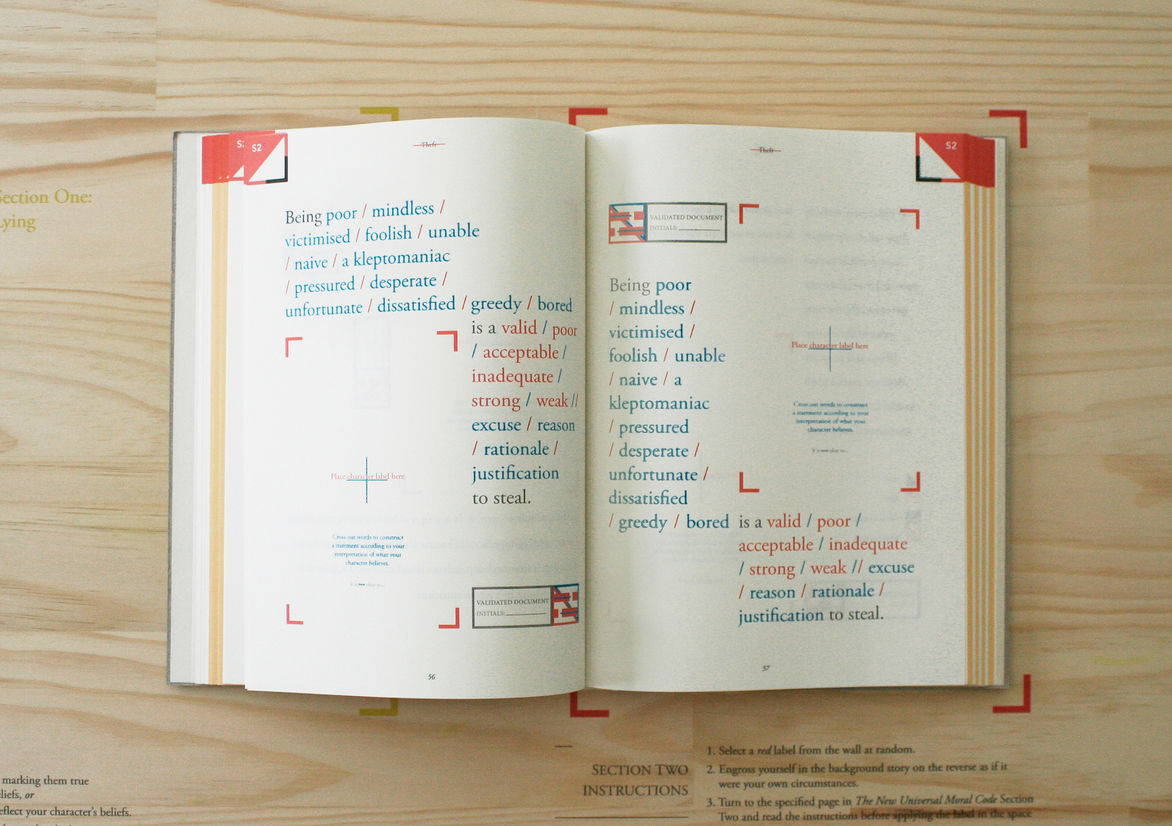 Section One:
Lying
S2
S2
Theft
Being poor / mindless /
victimised / foolish / unable
/ naive / a kleptomaniac
/ pressured / desperate /
unfortunate / dissatisfied / greedy / bored
is a valid / poor
/ acceptable /
inadequate /
strong / weak //
excuse / reason
/ rationale /
justification
to steal.
Place character label here
Cross out words to construct
a statement according to your
interpretation of what your
character believes.
VALIDATED DOCUMENT
INITIALS:
56
Theft
S2
VALIDATED DOCUMENT
INITIALS:
Being poor
/ mindless /
victimised /
foolish / unable
/ naive / a
kleptomaniac
/ pressured
/ desperate /
unfortunate /
dissatisfied
/ greedy / bored is a valid / poor /
acceptable / inadequate
/ strong / weak // excuse
/ reason / rationale /
justification to steal.
Place character label here
Cross out words to construct
a statement according to your
interpretation of what your
character believes.
57
marking them true
liefs, or
eflect your character's beliefs.
SECTION TWO
INSTRUCTIONS
1. Select a red label from the wall at random.
2. Engross yourself in the background story on the reverse as if it
were your own circumstances.
3. Turn to the specified page in The New Universal Moral Code Section
Two and read the instructions before applying the label in the space